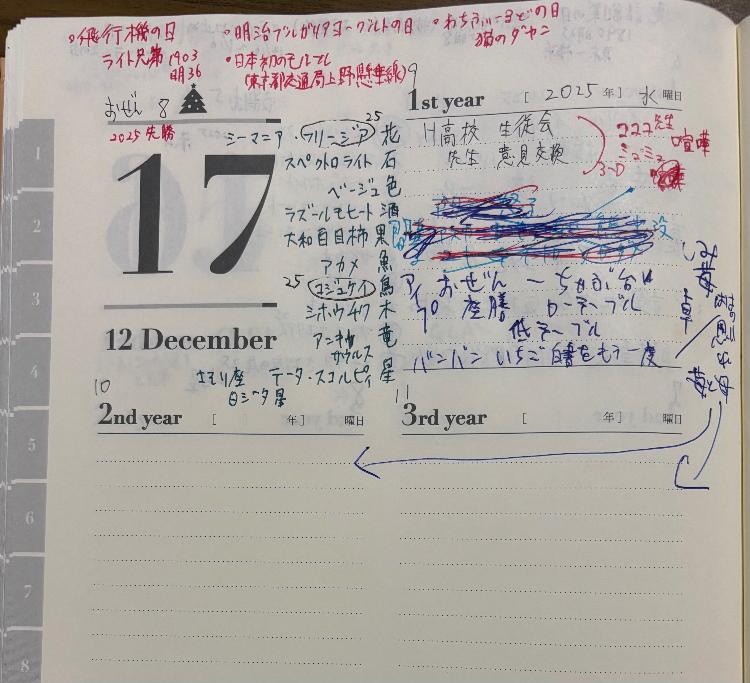 ○飛行機の日
ライト兄弟 1903
明36
○明治ブルガリアヨーグルトの日
○日本初のモノレール
(東京都交通局上野懸垂線)
○わちふぃーるどの日
猫のダヤン
おぜん 8
2025 先勝
17
12 December
25
シーマニア・フリージア 花
スペクトロライト 石
ベージュ 色
ラズールモヒート 酒
大和百目柿 果
アカメ 魚
25 コジュケイ 鳥
シホウチク 木
アンキロサウルス 竜
さそり座 データ・スコルピィ 星
ロシータ星
9
1st year [ 2025 年] 水 曜日
H高校 生徒会
先生 意見交換
ココア先生
ミュミュ
喧嘩
3-D
アイ おぜん ー ちゃぶ台
プ 座膳 ローテーブル
低テーブル
バンバン いちご白書をもう一度
苺
卓
10
2nd year [ 年] 曜日
11
3rd year [ 年] 曜日
1
2
3
4
5
6
7
8